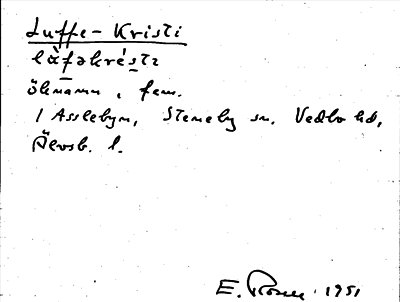 Luffe-Kristi
läfəkrèstɪ
öknamn, fem.
/ Asslebyn, Steneby sn, Vedbo hd,
Älvsb. l.
E. Rosell 1951